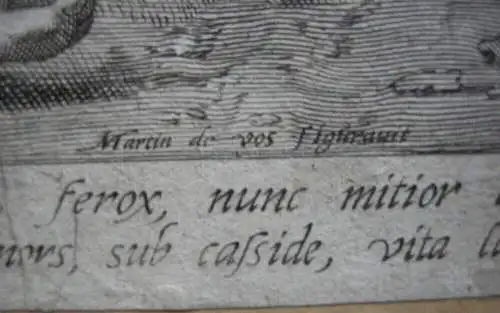 Martin de vos figuravit
ferox, nunc mitior
mors, sub casside, vita